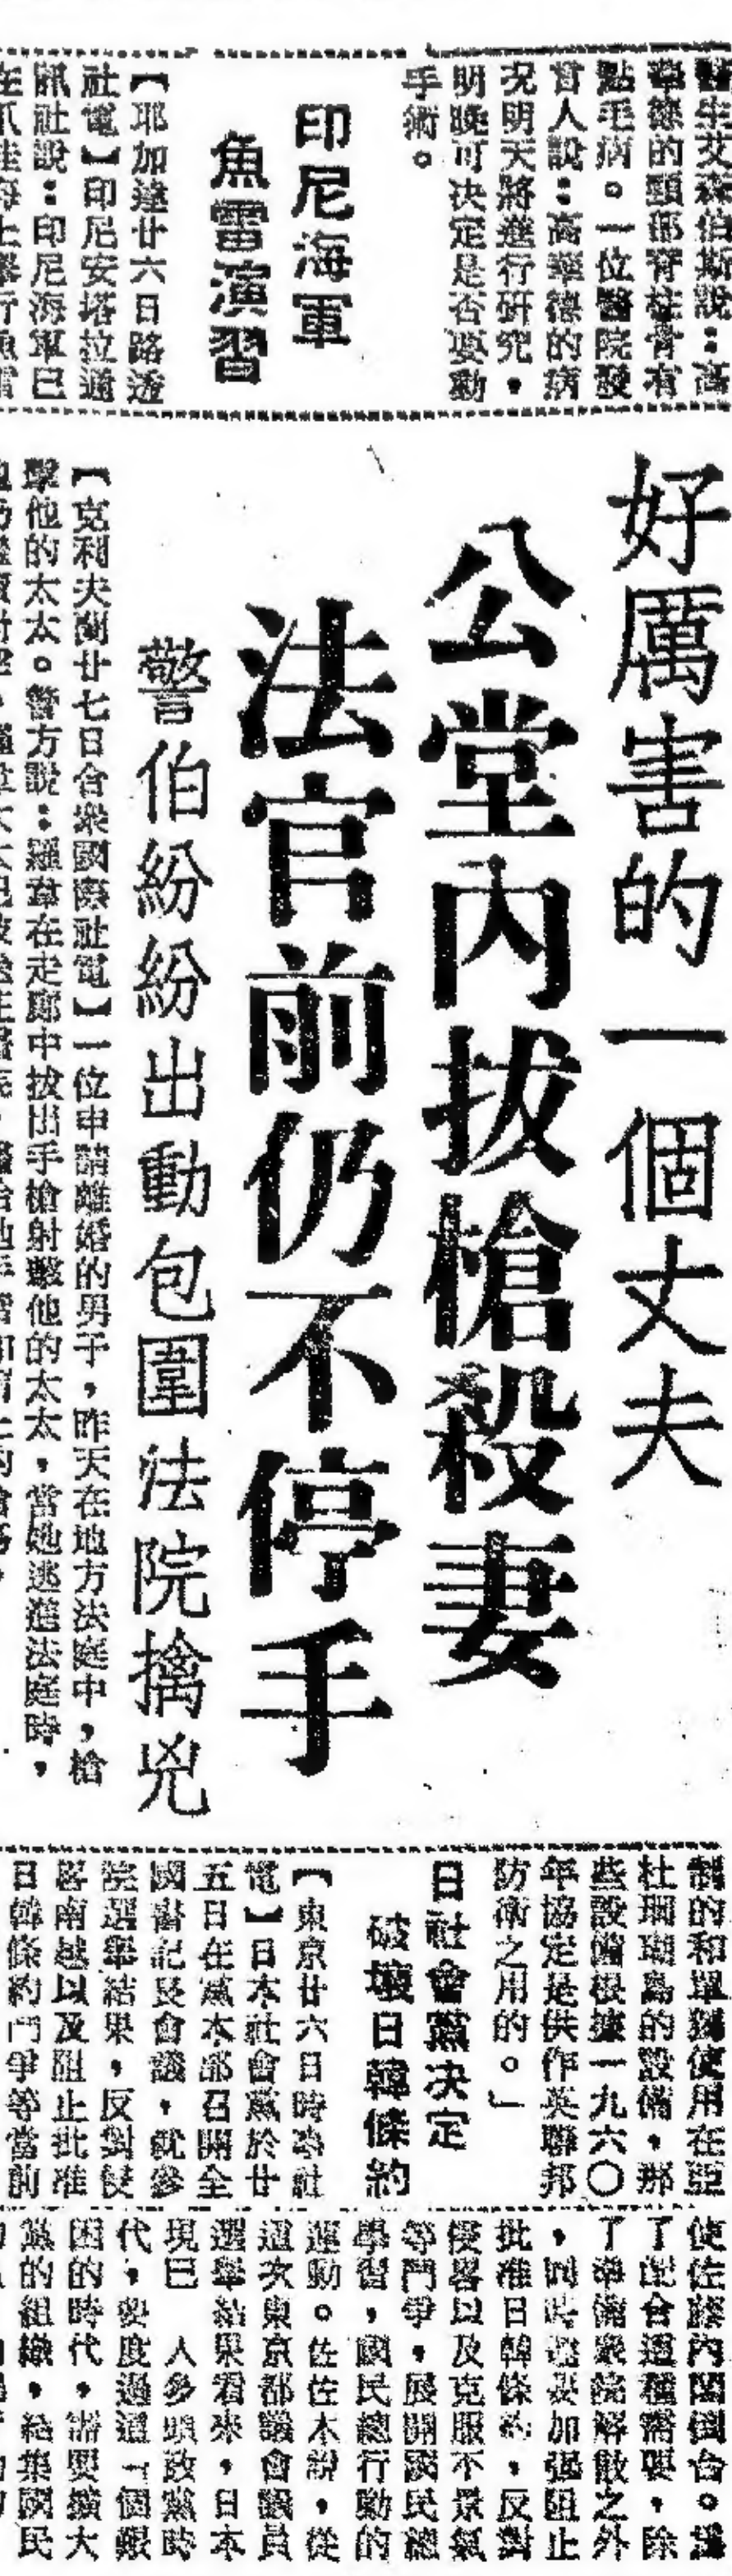 醫生艾森伯斯說：高
華德的頸部脊柱骨有
點毛病。一位醫院發
言人說：高華德的病
況明天將進行研究，
明晚可決定是否要動
手術。
印尼海軍
魚雷演習
【耶加達廿六日路透
社電】印尼安塔拉通
訊社說：印尼海軍已
好厲害的一個丈夫
公堂內拔槍殺妻
法官前仍不停手
警伯紛紛出動包圍法院擒兇
【克利夫蘭廿七日合衆國際社電】一位申請離婚的男子，昨天在地方法庭中，槍
擊他的太太。警方說：羅韋在走廊中拔出手槍射擊他的太太，當她逃進法庭時，
制的和單獨使用在亞
杜珊瑚島的設備，那
些設備根據一九六〇
年協定是供作英聯邦
防衛之用的。」
日社會黨決定
破壞日韓條約
【東京廿六日時事社
電】日本社會黨於廿
五日在黨本部召開全
國書記長會議，就參
院選舉結果，反對侵
畧南越以及阻止批准
日韓條約鬥爭等當前
使佐藤內閣倒台。爲
了配合這種需要，除
了準備衆院解散之外
，同時還要加强阻止
批准日韓條約，反對
侵畧以及克服不景氣
等鬥爭，展開國民總
學習，國民總行動的
運動。佐佐木說，從
這次東京都議會議員
選舉結果看來，日本
現已 人多頭政黨時
代，要度過這一個艱
困的時代，需要擴大
黨的組織，結集國民